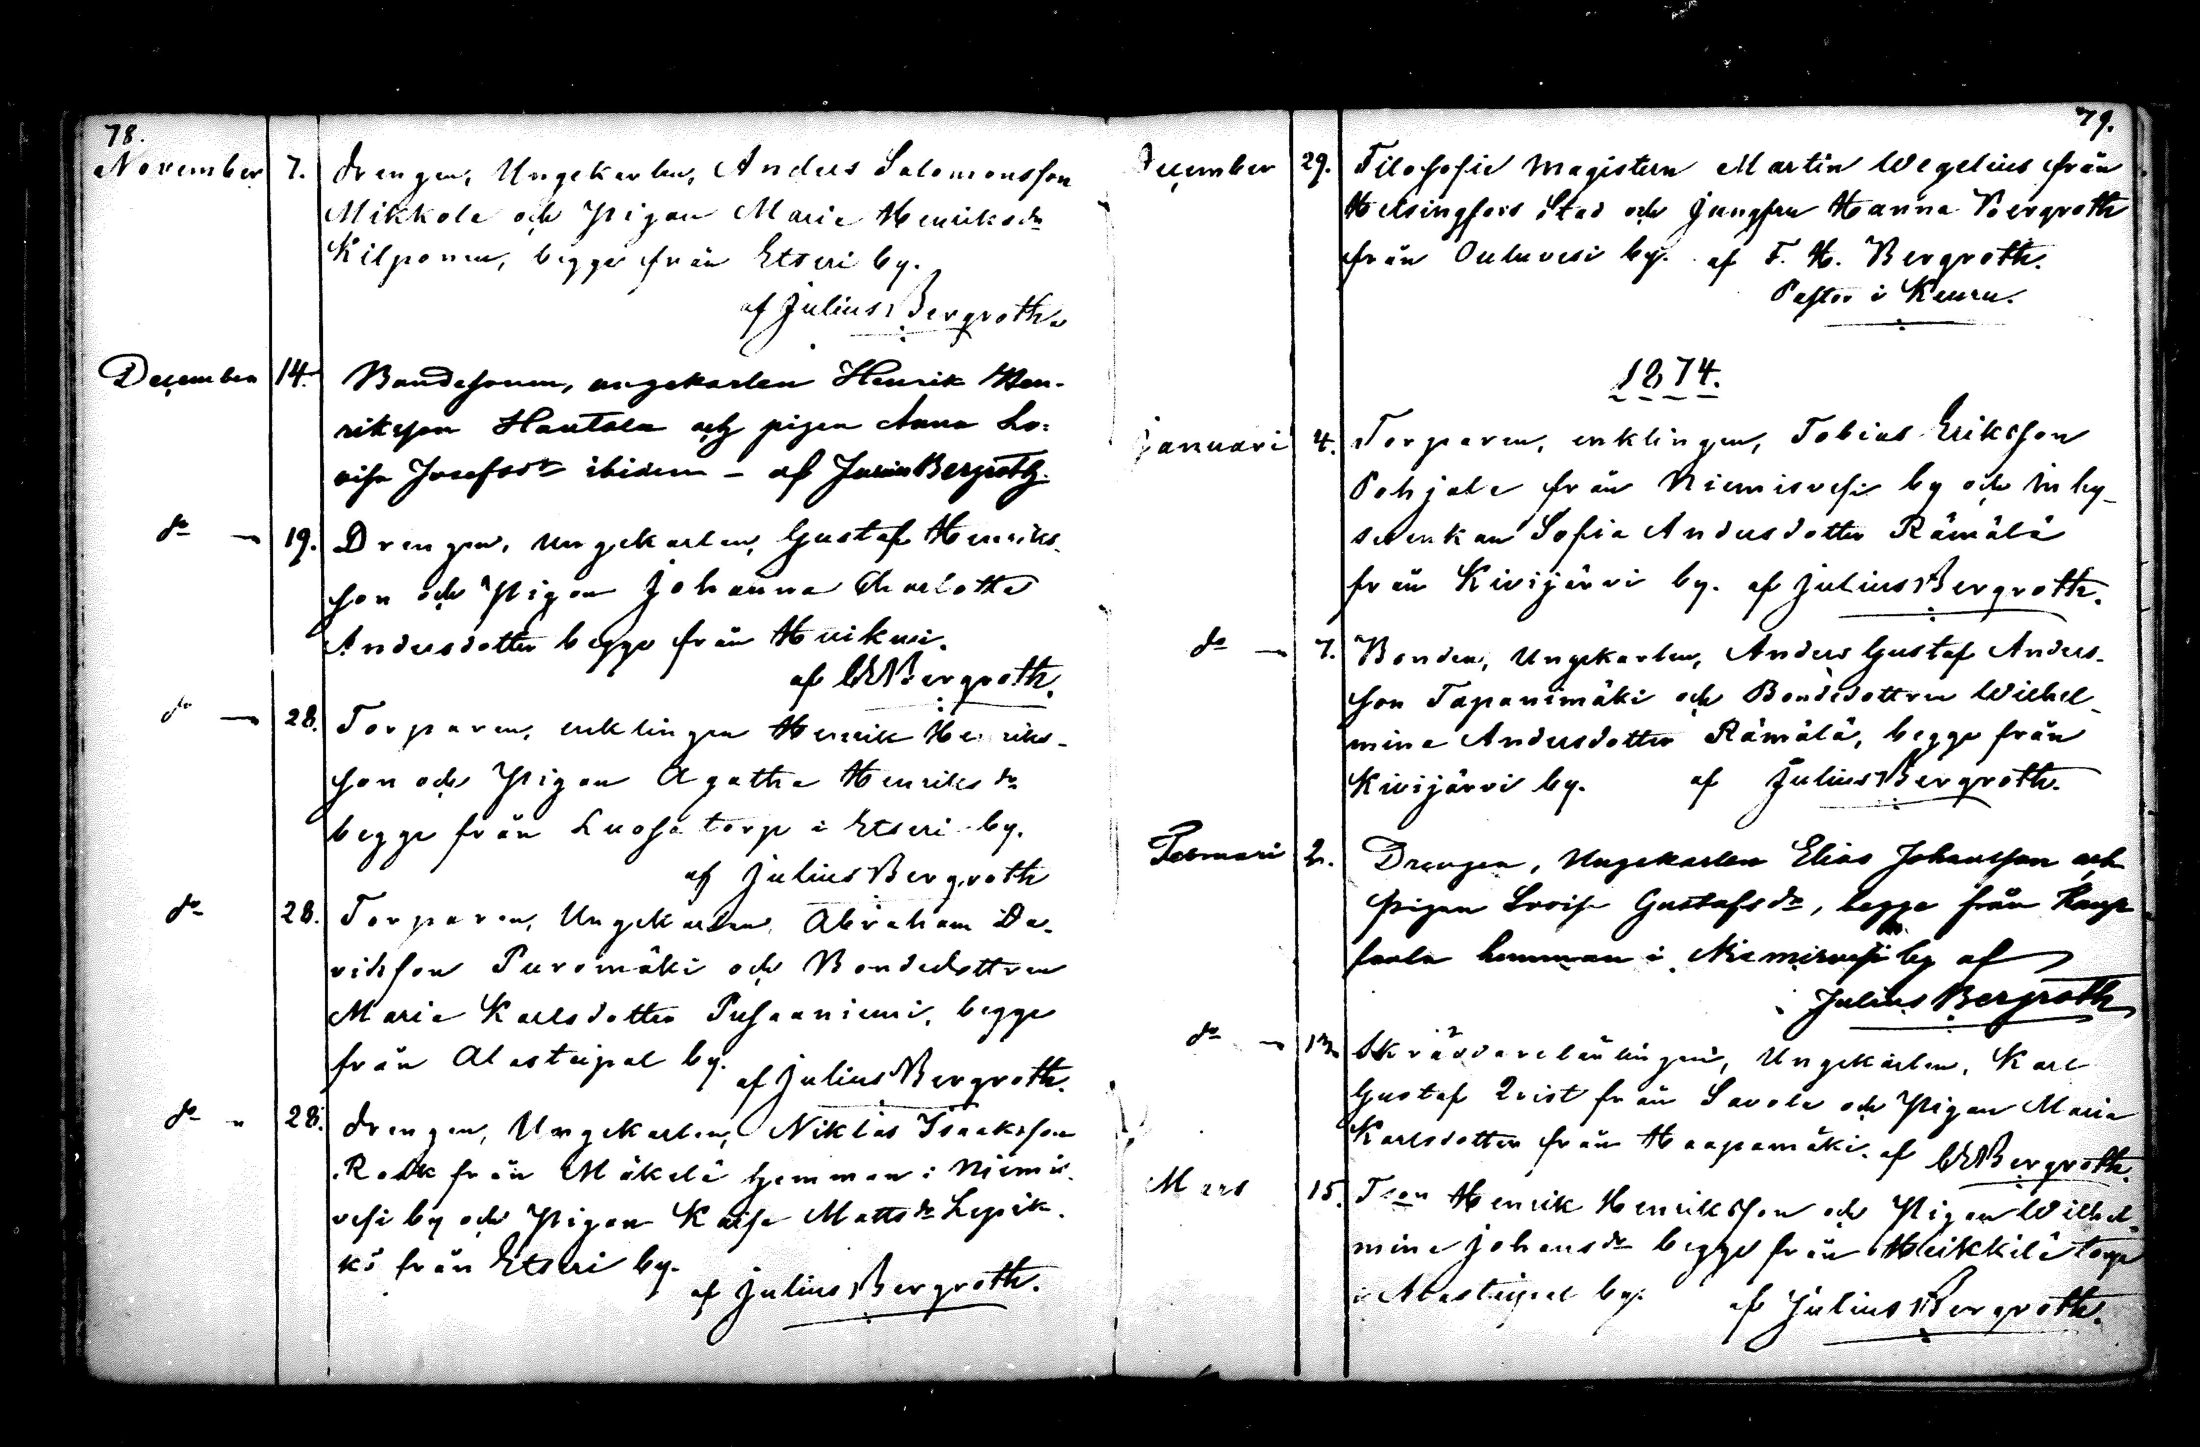 78.
November 7. Drengen, Ungekarlen, Anders Salomonsson
Mikkola och Pigan Maria Henriksdr
Kilponen, begge från Etseri by.
af Julius Bergroth.
December 14. Bondesonen, ungekarlen Henrik Hen-
riksson Hautala och pigan Anna Lo-
visa Josefsdr ibidem – af Julius Bergroth.
do — 19. Drengen, Ungekarlen, Gustaf Henriks-
son och Pigan Johanna Charlotta
Andersdotter begge från
af Bergroth.
do — 28. Torparen, enklingen Henrik Henriks-
son och Pigan Agatha Henriksdr
begge från Luosa torp i Etseri by.
af Julius Bergroth
do 28. Torparen, Ungekarlen, Abraham Da-
vidsson Puromäki och Bondedottren
Maria Karlsdotter Pusaaniemi, begge
från Alastaipal by.
af Julius Bergroth.
do " 28. Drengen, Ungekarlen, Niklas Isaaksson
Rask från Mäkelä hemman i Niemis-
vesi by och Pigan Kaisa Mattsdr Lepik-
kö från Etseri by.
af Julius Bergroth.
79.
December 29. Filosofie Magistern Martin Wegelius från
Helsingfors Stad och Jungfru Hanna Bergroth
från Ouluvesi by. af F. H. Bergroth.
Pastor i Keuru.
1874.
Januari 4. Torparen, enklingen, Tobias Eriksson
Pohjala från Niemisvesi by och Inhy-
seenkan Sofia Andersdotter Rämälä
från Kivijärvi by. af Julius Bergroth.
do — 7. Bonden, Ungekarlen, Anders Gustaf Anders-
son Tapanimäki och Bondedottren Wilhel-
mina Andersdotter Rämälä, begge från
Kivijärvi by. af Julius Bergroth.
Februari 2. Drengen, Ungekarlen Elias Johansson och
pigan Lovisa Gustafsdr, begge från
hemman i Niemisvesi by af
Julius Bergroth
do — 13. Skräddarelärlingen, Ungekarlen, Karl
Gustaf Qvist från Savola och Pigan Maria
Karlsdotter från Haapamäki. af Bergroth.
Mars 15. Tson Henrik Henriksson och Pigan Wilhel-
mina Johansdr begge från Heikkilä torp
i Alastaipal by. af Julius Bergroth.